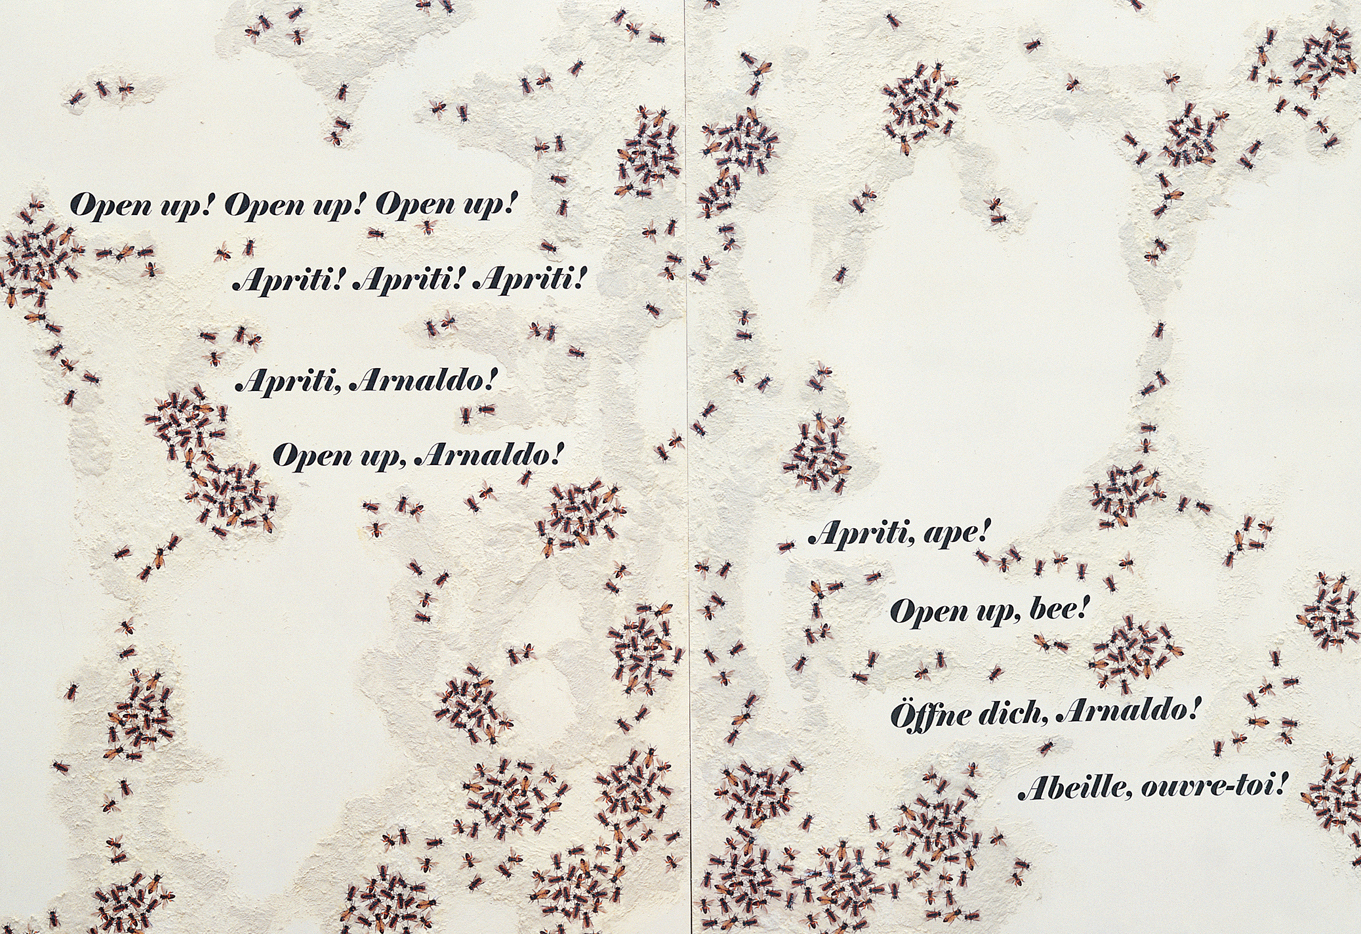 Open up! Open up! Open up!
Apriti! Apriti! Apriti!
Apriti, Arnaldo!
Open up, Arnaldo!
Apriti, ape!
Open up, bee!
Öffne dich, Arnaldo!
Abeille, ouvre-toi!